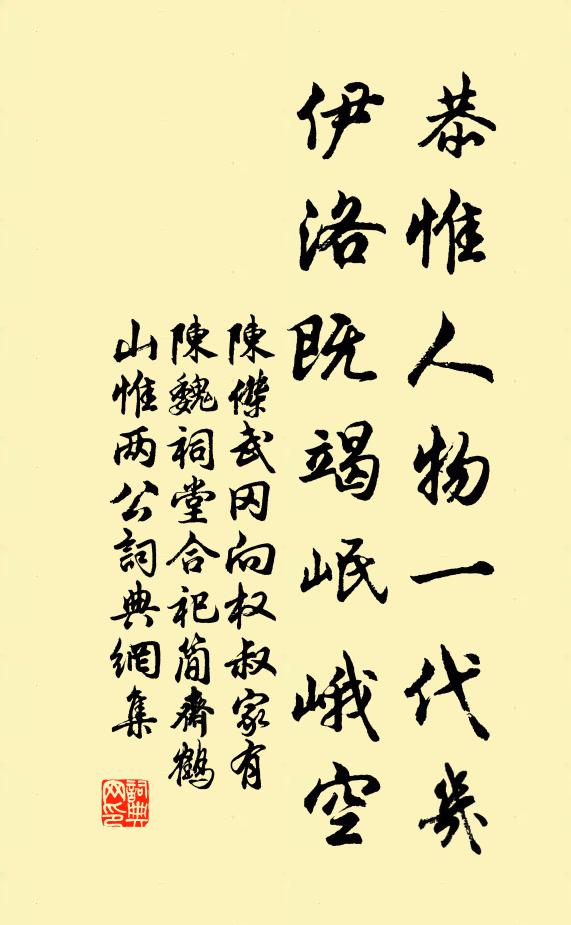 恭惟人物一代幾
伊洛既竭岷峨空
陳傑武冈向权叔家有
陳魏祠堂合祀简齋鶴
山惟两公詞典網集
詞典网印